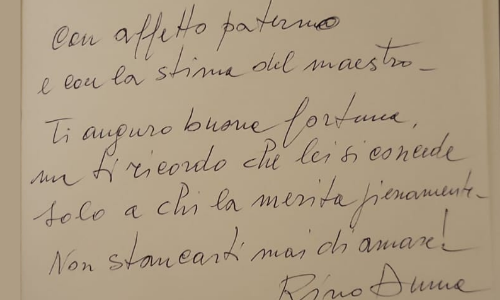 Con affetto paterno
e con la stima del maestro_
Ti auguro buona fortuna,
ma ti ricordo che lei si concede
solo a chi la merita pienamente_
Non stancarti mai di amare!
Rino